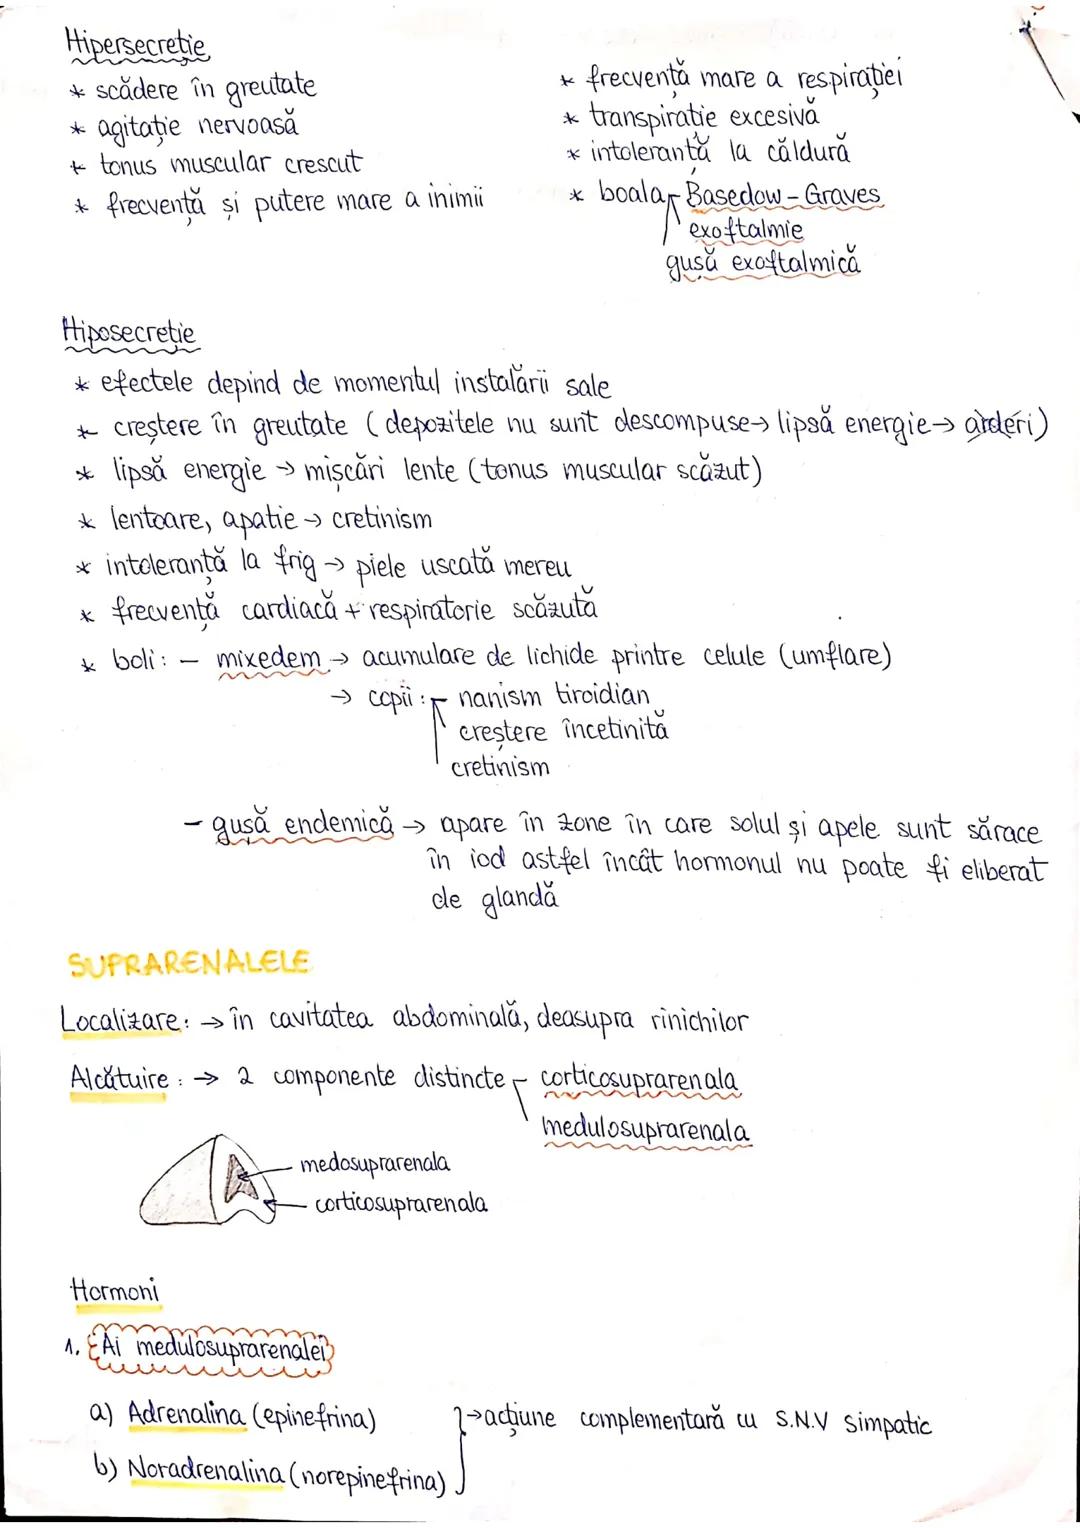 Hipersecreție
* scădere în greutate
* agitație nervoasă
* tonus muscular crescut
* frecvență și putere mare a inimii
* frecvență mare a respirației
* transpirație excesivă
* intoleranță la căldură
* boala Basedow - Graves
exoftalmie
gușă exoftalmică
Hiposecreție
* efectele depind de momentul instalării sale
* creștere în greutate (depozitele nu sunt descompuse → lipsă energie → arderi)
* lipsă energie → mișcări lente (tonus muscular scăzut)
* lentoare, apatie → cretinism
* intoleranță la frig → piele uscată mereu
* frecvență cardiacă + respiratorie scăzută
* boli: - mixedem → acumulare de lichide printre celule (umflare)
→ copii: nanism tiroidian
creștere încetinită
cretinism
- gușă endemică → apare în zone în care solul și apele sunt sărace
în iod astfel încât hormonul nu poate fi eliberat
de glandă
SUPRARENALELE
Localizare: → în cavitatea abdominală, deasupra rinichilor
Alcătuire: → 2 componente distincte corticosuprarenala
medulosuprarenala
medosuprarenala
corticosuprarenala
Hormoni
1. Ai medulosuprarenalei
a) Adrenalina (epinefrina)
b) Noradrenalina (norepinefrina)
→ acțiune complementară cu S.N.V simpatic